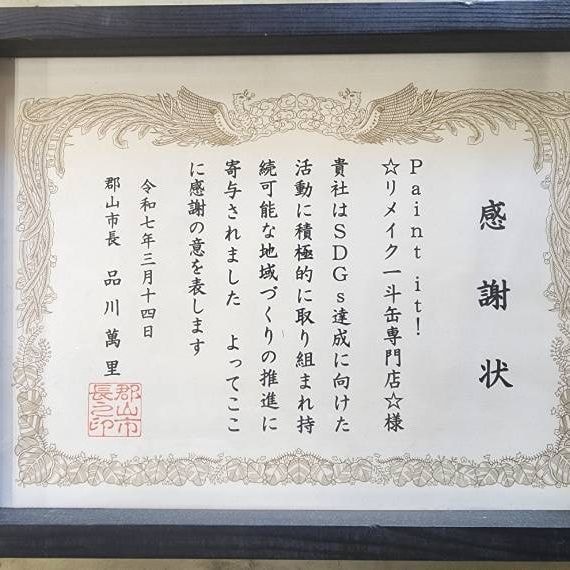 感謝状
Paint it!
☆リメイク一斗缶専門店☆様
貴社はSDGs達成に向けた
活動に積極的に取り組まれ持
続可能な地域づくりの推進に
寄与されました　よってここ
に感謝の意を表します
令和七年三月十四日
郡山市長　品川萬里
郡山市
長之印